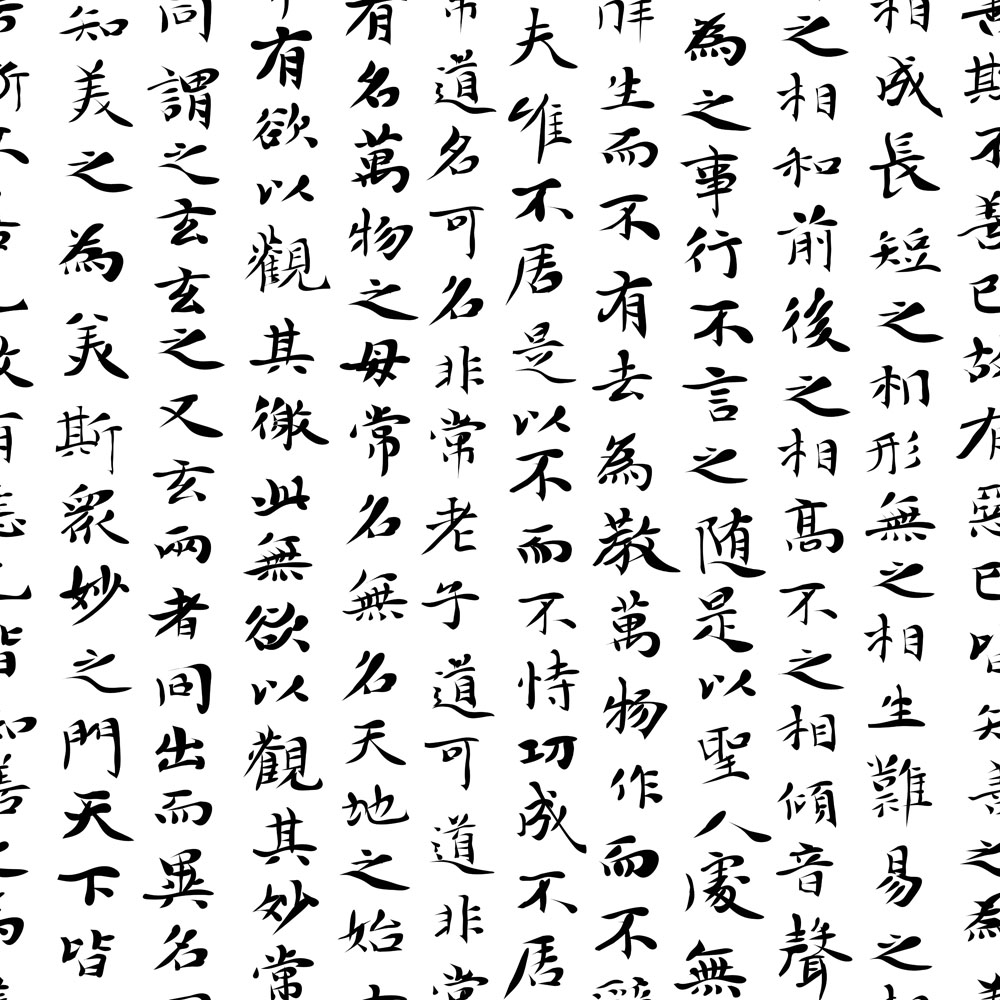 善斯不善已故有惡已皆知善之為
相成長短之相形無之相生難易之
之相和前後之相高不之相傾音聲
為之事行不言之随是以聖人處無
生而不有去為教萬物作而不
夫唯不居是以不而不恃功成不居
常道名可名非常老子道可道非常
有名萬物之母常名無名天地之始
有欲以觀其徼此無欲以觀其妙常
同謂之玄玄之又玄兩者同出而異名
知美之為美斯衆妙之門天下皆